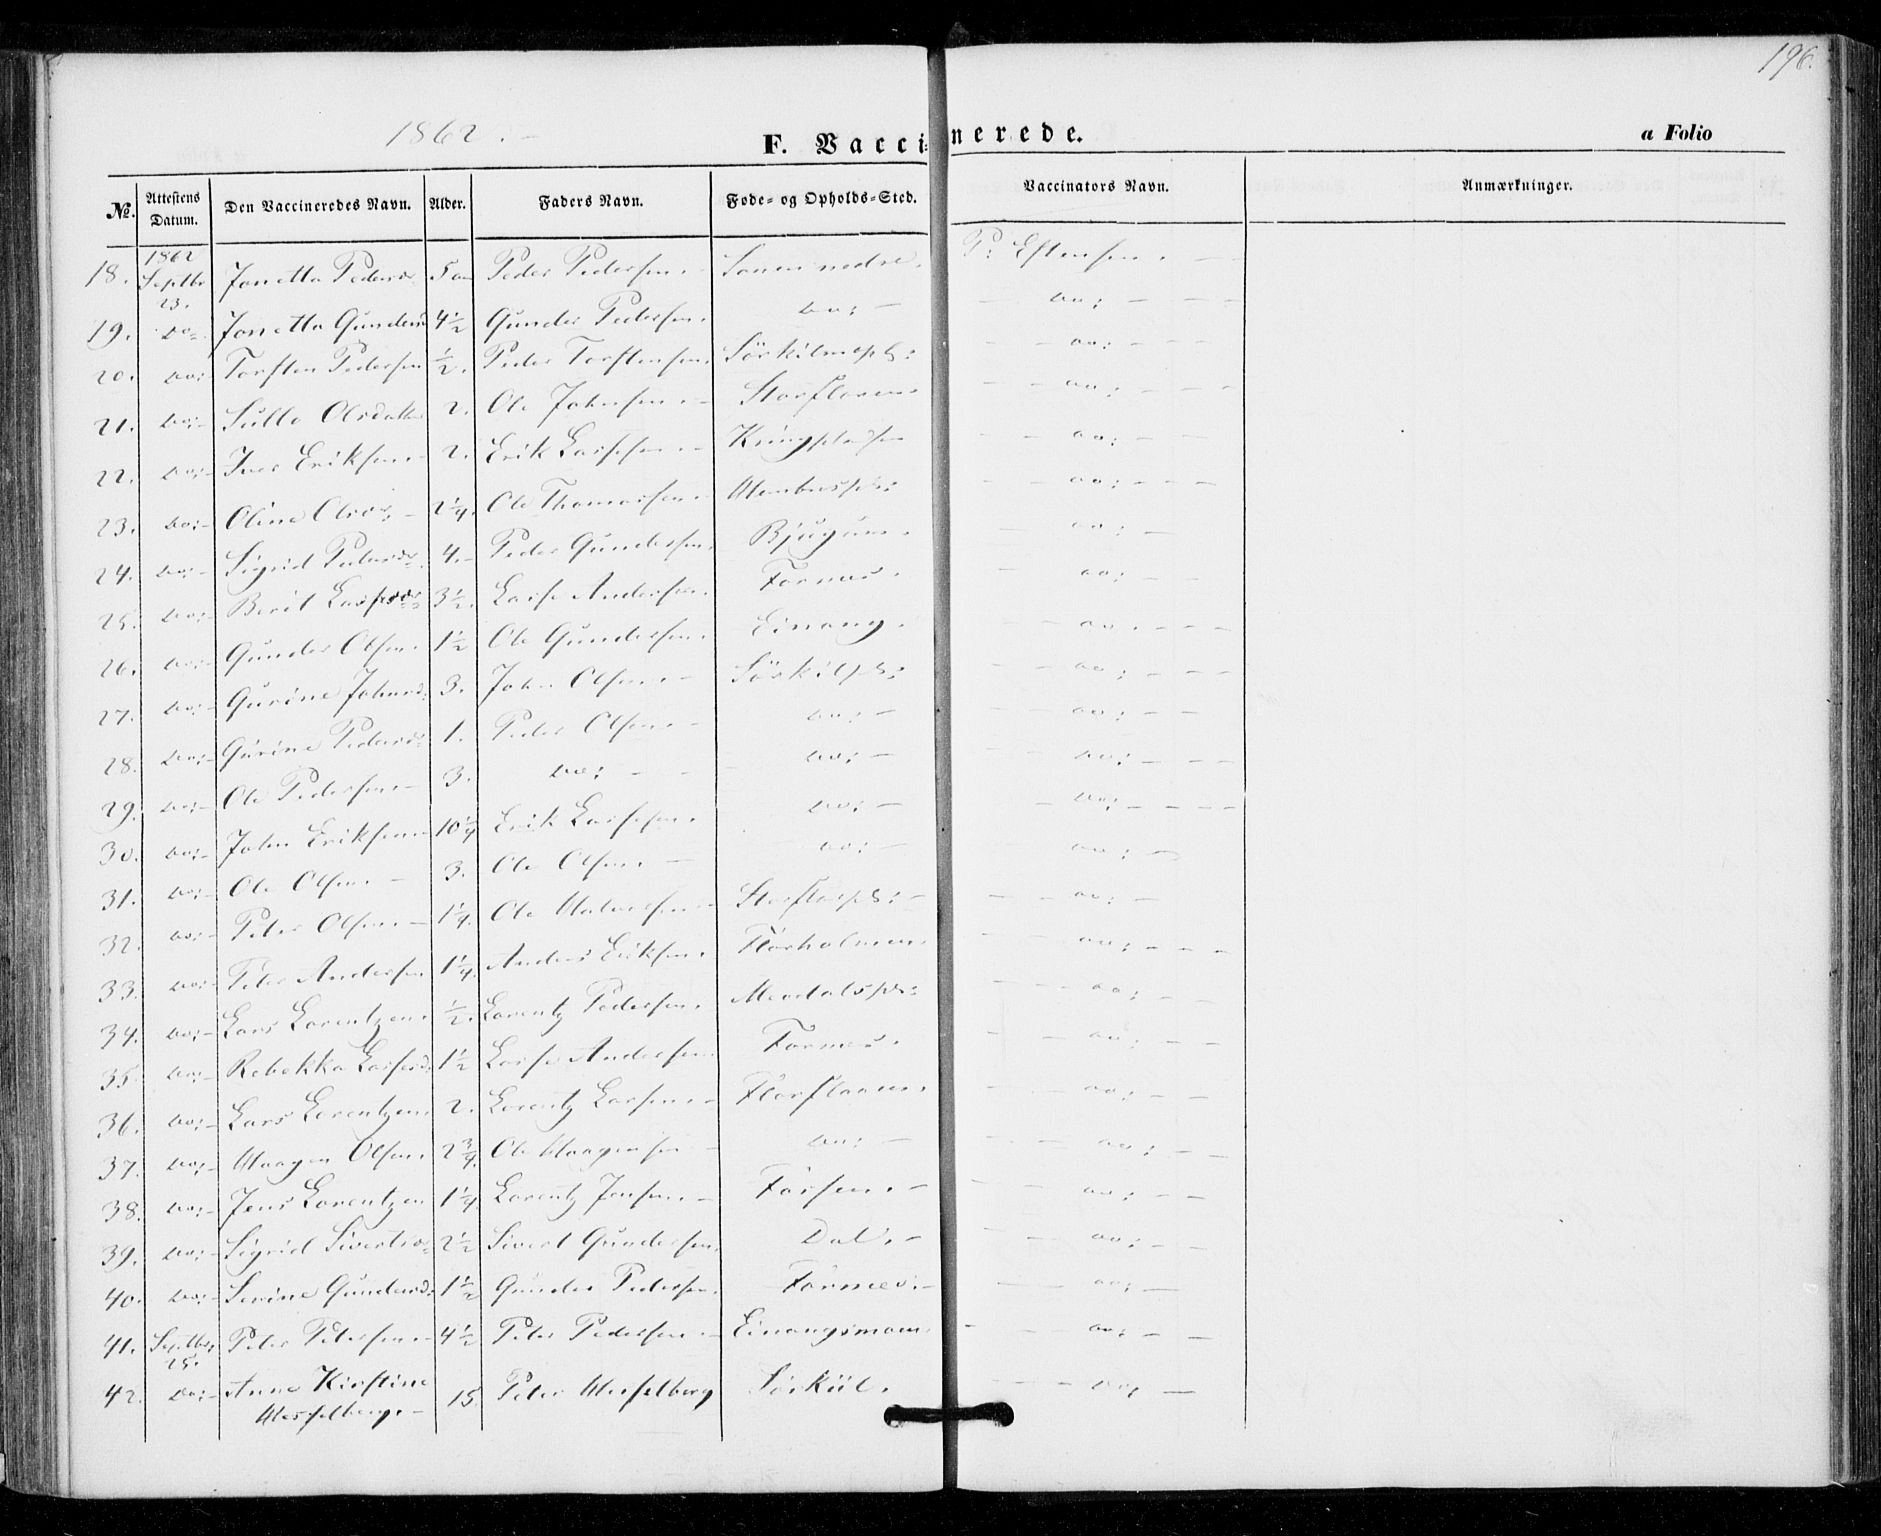 196.
1862.-
F. Vaccinerede.
a Folio
No. Attestens Datum. Den Vaccineredes Navn. Alder. Faders Navn. Føde- og Opholds-Sted. Vaccinators Navn. Anmærkninger.
18. 1862 Septbr 23. Jonetta Pedersd. 5 Peder Pedersen. nedre. P: Estensen.
19. do- Jonetta Gundersd 4½ Gunder Pedersen. do: - do: -
20. do: Torsten Pedersen ½. Peder Torstensen. do: -
21. do:- Olsdatter 2. Ole Johnsen. - do: -
22. do:- Iver Eriksen.- 2. Erik Larssen. - do: -
23. do:- Oline Olsd: - 2¼. Ole Thomassen. - do: -
24. do:- Sigrid Pedersd. 4.- Peder Gundersen. do: -
25. do:- Berit Larsesd: 3½. Lars Andersen. Fornes. do: -
26. do:- Gunder Olsen. 1½ Ole Gundersen. Einang. do. -
27. do:- Gurine Johnsd: 3. John Olsen. - do: -
28. do:- Gurine Pedersd: 1. Peder Olsen. - do: - do: -
29. do:- Ole Pedersen.- 3. do: - do: - do: -
30. do:- John Eriksen- 10¼ Erik Larssen. do: - do: -
31. do:- Ole Olsen. - 3. Ole Olsen. - do: - do: -
32. do:- Peter Olsen.- 1¼. Ole Halvorsen - do: -
33. do:- Peter Andersen 1¼. Anders Eriksen. do: -
34. do:- Lars Lorentzen. ½. Lorentz Pedersen. do: -
35. do:- Rebekka Larsesd: 1½ Lars Andersen Fornes. do: -
36. do:- Lars Lorentzen. 2. Lorentz Larsen. - do: -
37. do:- Haagen Olsen. 2¾. Ole Haagensen - do: - do: -
38. do:- Jens Lorentzen 1¼ Lorentz Jensen. - do: -
39. do:- Sigrid Sivertsd- 2½ Sivert Gundersen. Dal. - do: -
40. do:- Serine Gundersd: 1½ Gunder Pedersen. Fornes.- do: -
41. Septbr. 25. Peter Petersen.- 4½ Peter Pedersen. - do: -
42. do:- Anne Kirstine 15 Peter Hesselberg do, -
Hesselberg.-